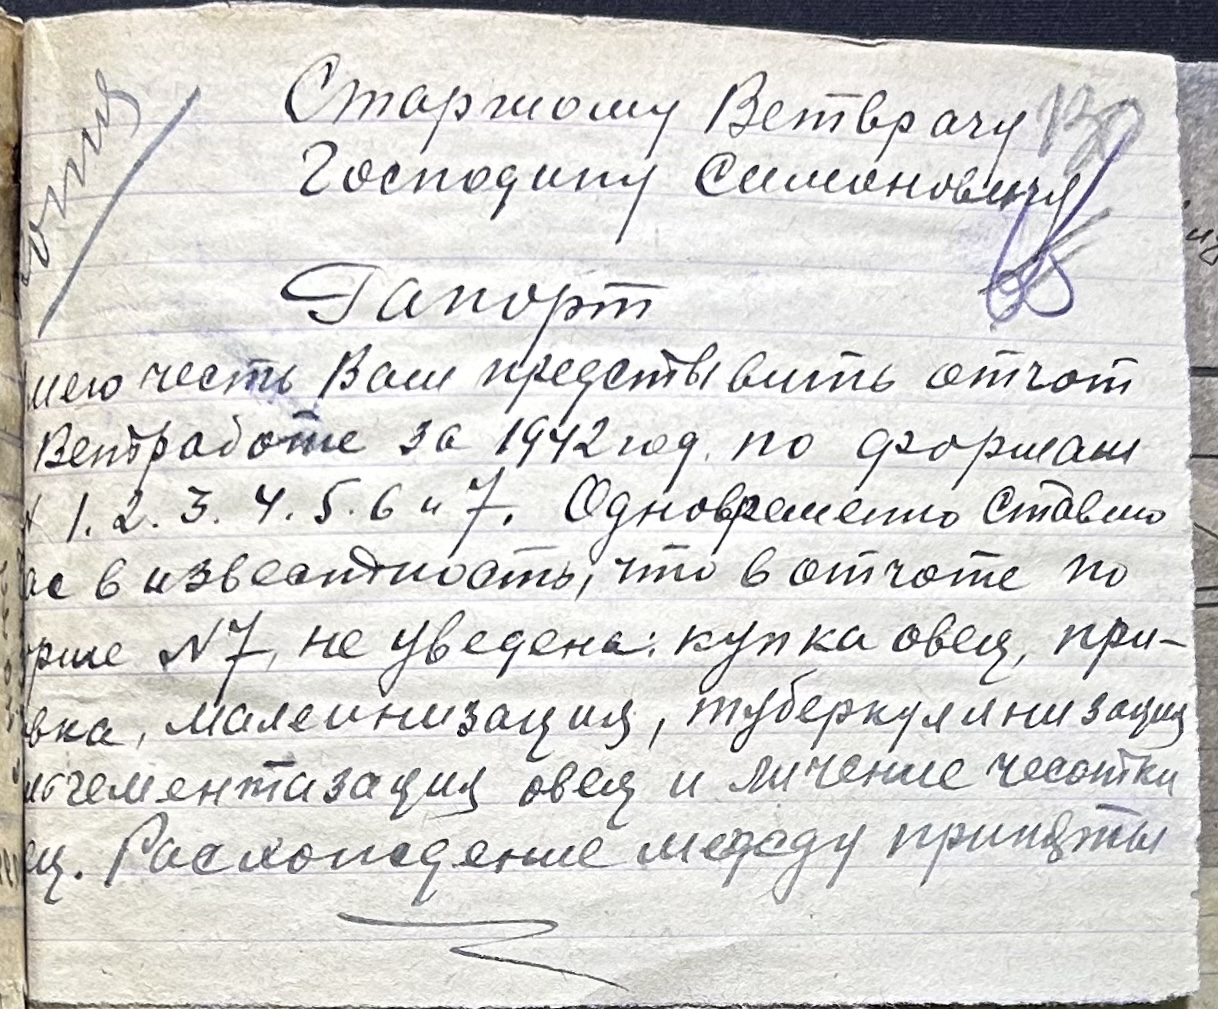 Старшому Ветврачу
Господину Симоновичу
Рапорт
мею честь Вам предствы вить отчот
Ветработе за 1942 год. по формам
N 1. 2. 3. 4. 5. 6 и 7. Одновременно ставлю
ас в извесантность, что в отчоте по
орме N7, не уведена: купка овец, при-
вка, малеинизация, туберкулинизация
гементизация овец и личение чесотки
ец. Расхождение между приняты